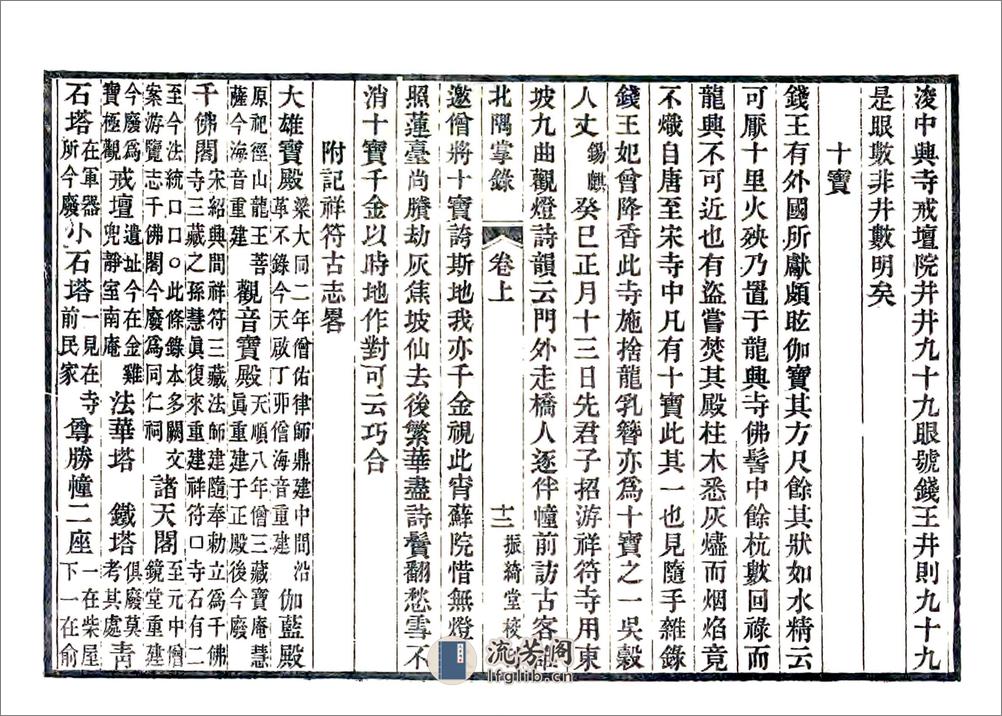 浚中興寺戒壇院井井九十九眼號錢王井則九十九
是眼數非井數明矣
十寶
錢王有外國所獻頗眩伽寶其方尺餘其狀如水精云
可厭十里火殃乃置于龍興寺佛髻中餘杭數回祿而
龍興不可近也有盜嘗焚其殿柱木悉灰燼而烟焰竟
不熾自唐至宋寺中凡有十寶此其一也見隨手雜錄
錢王妃曾降香此寺施捨龍乳簪亦為十寶之一吳穀
人丈錫麒癸巳正月十三日先君子招游祥符寺用東
坡九曲觀燈詩韻云門外走橋人逐伴幢前訪古客
北隅掌錄 卷上 十二 振綺堂校
邀僧將十寶誇斯地我亦千金視此宵蘇院惜無燈
照蓮臺尚賸劫灰焦坡仙去後繁華盡詩鬢翻愁雪不
消十寶千金以時地作對可云巧合
附記祥符古志畧
大雄寶殿梁大同二年僧佑律師鼎建中間沿革不錄今天啟丁卯僧海音重建伽藍殿
原祀徑山龍王菩薩今海音重建觀音寶殿天順八年僧三藏寶庵慧眞重建于正殿後今廢
千佛閣宋紹興間祥符三藏法師建隨奉勅立為千佛寺三藏之孫慧眞復來重建祥符口寺石有二
至今法統口口。此條錄本多闕文案游覽志千佛閣今廢為同仁祠諸天閣至元中僧鏡堂重建
今廢為寶極觀戒壇遺址今在金雞兜靜室南庵法華塔 鐵塔俱廢莫考其處青
石塔在軍器所今廢小石塔一見在寺前民家尊勝幢二座一在柴屋下一在俞
流芳閣
lfglib.cn